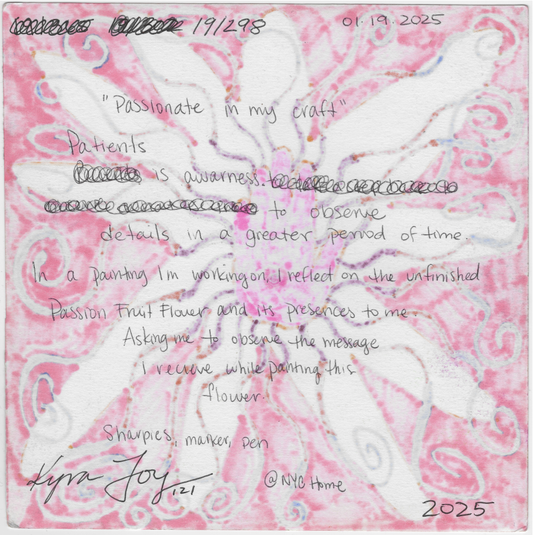 19/298 01.19.2025
"Passionate in my craft"
Patients
is awarness.
to observe
details in a greater period of time.
In a painting Im working on, I reflect on the unfinished
Passion Fruit Flower and its presences to me.
Asking me to observe the message
I recieve while painting this
flower.
Sharpies, marker, pen
Kyra Joy
.121
@NYC Home
2025